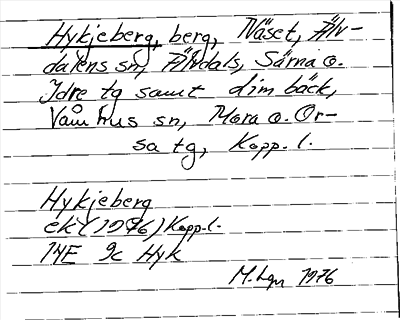 Hykjeberg, berg, Näset, Älv-
dalens sn, Älvdals, Särna o.
Idre tg samt dim bäck,
Våmhus sn, Mora o. Or-
sa tg, Kopp. l.
Hykjeberg
ek (1976) Kopp. l.
14E 9c Hyk
M. 1976